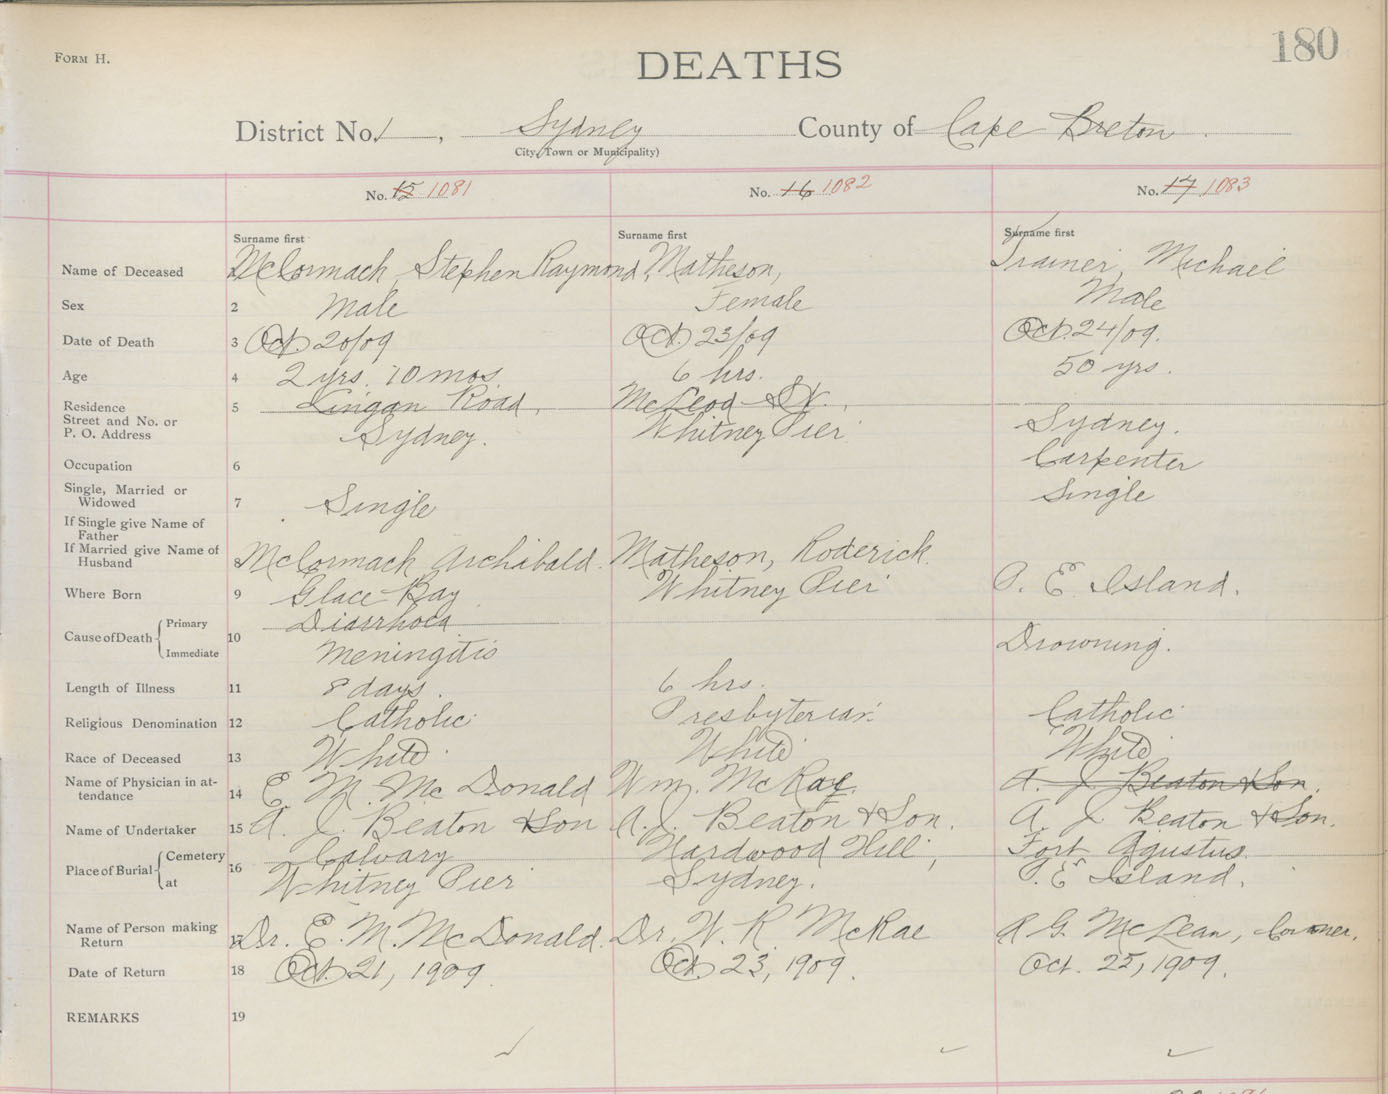 FORM H.
DEATHS
180
District No. 1, Sydney County of Cape Breton.
City, Town or Municipality)
No. 15 1081 No. 16 1082 No. 17 1083
Surname first Surname first Surname first
Name of Deceased McCormack, Stephen Raymond, Matheson, Trainer, Michael
Sex 2 Male Female Male
Date of Death 3 Oct. 20/09 Oct. 23/09 Oct. 24/09.
Age 4 2 yrs. 10 mos. 6 hrs. 50 yrs.
Residence 5 Lingan Road, McLeod St.,
Street and No. or
P. O. Address Sydney. Whitney Pier Sydney.
Occupation 6 Carpenter
Single, Married or
Widowed 7 Single Single
If Single give Name of
Father
If Married give Name of
Husband 8 McCormack Archibald. Matheson, Roderick.
Where Born 9 Glace Bay Whitney Pier P. E. Island.
Cause of Death Primary 10 Diarrhoea Drowning.
Immediate Meningitis
Length of Illness 11 8 days. 6 hrs.
Religious Denomination 12 Catholic Presbyterian. Catholic
Race of Deceased 13 White White White
Name of Physician in at-
tendance 14 E. M. McDonald Wm. McRae. A. J. Beaton & Son.
Name of Undertaker 15 A. J. Beaton & Son A. J. Beaton & Son. A. J. Beaton & Son.
Place of Burial Cemetery 16 Calvary Hardwood Hill, Fort Agustus
at Whitney Pier Sydney. P. E. Island.
Name of Person making
Return 17 Dr. E. M. McDonald. Dr. W. R. McRae R G. McLean, Coroner.
Date of Return 18 Oct. 21, 1909. Oct. 23, 1909. Oct. 25, 1909.
REMARKS 19